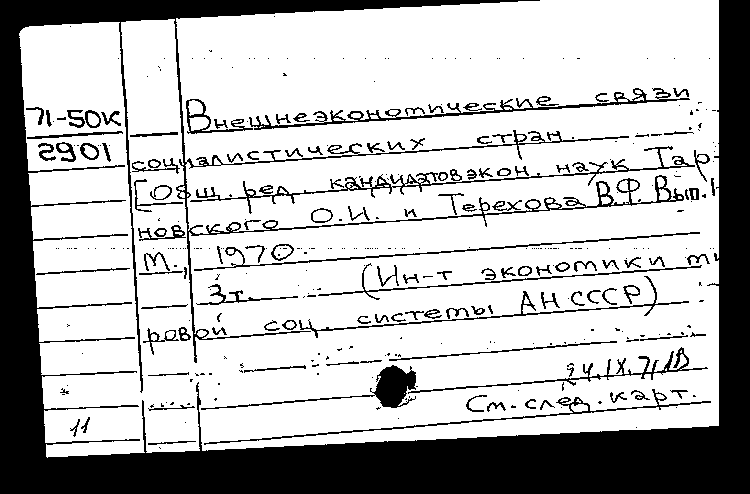 71-50К
2901
Внешнеэкономические связи
социалистических стран.
[Общ. ред. кандидатов экон. наук Тар-
новского О.И. и Терехова В.Ф. Вып. 1-
М., 1970.
3т. (Ин-т экономики ми
ровой соц. системы АН СССР)
24.IX.71
См. след. карт.
11